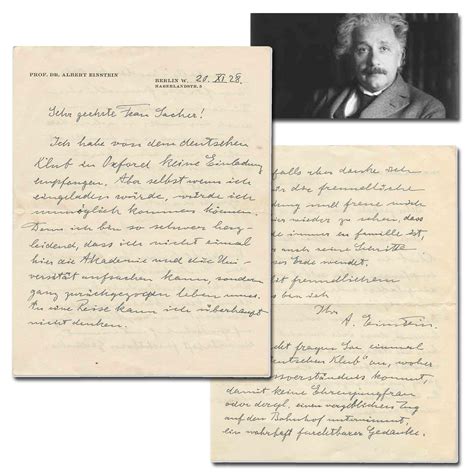 PROF. DR. ALBERT EINSTEIN
BERLIN W. 20. XI. 28.
HABERLANDSTR. 5
Sehr geehrte Frau Sacher!
Ich habe von dem deutschen
Klub in Oxford keine Einladung
empfangen. Aber selbst wenn ich
eingeladen würde, würde ich
unmöglich kommen können.
Denn ich bin so schwer herz-
leidend, dass ich nicht einmal
hier die Akademie und die Uni-
versität aufsuchen kann, sondern
ganz zurückgezogen leben muss.
An eine Reise kann ich überhaupt
nicht denken.
falls aber danke
für die freundliche
und freue mich
wieder zu sehen, dass
immer en famille ist,
seine Schritte
Erde wendet.
freundlichem
Ihr
A. Einstein.
fragen Sie einmal
deutschen Klub" an, woher
kommt,
damit keine Ehrenjungfrau
oder dergl. einen vergeblichen Zug
auf den Bahnhof unternimmt,
ein wahrhaft furchtbarer Gedanke.